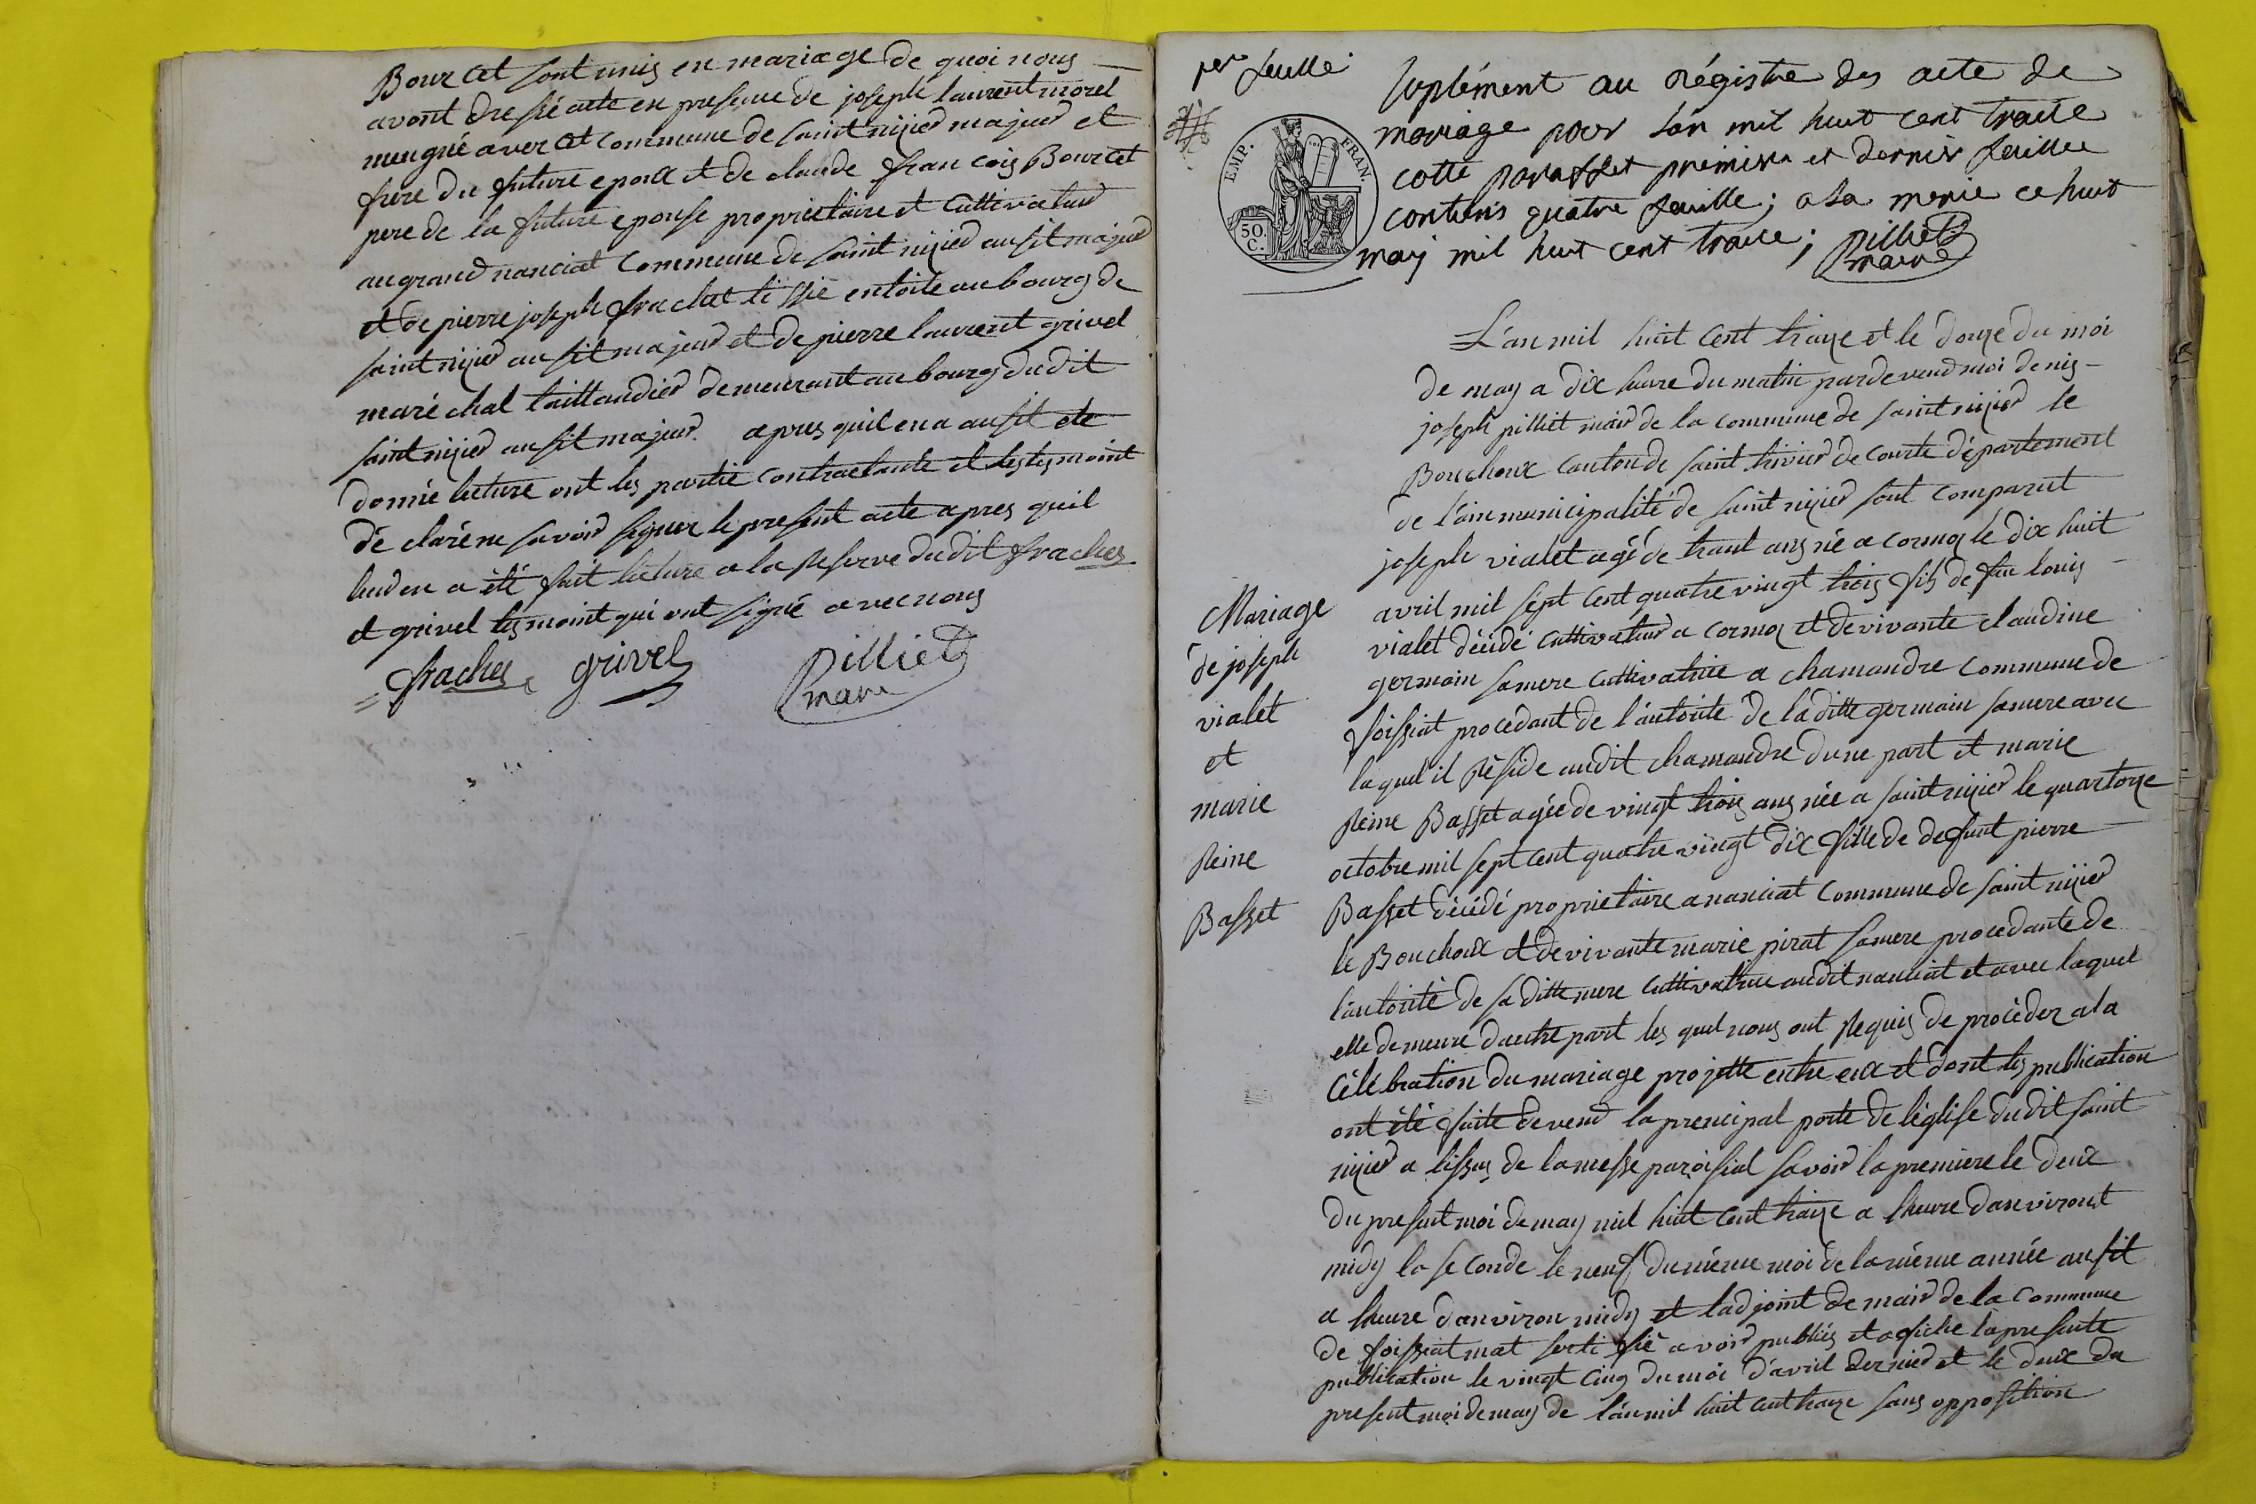 Bourcet sont unis en mariage de quoi nous
avont dressé acte en presence de joseph laurent morel
meugnié a vercet commune de saint nizier majeur et
frere du future epoux et de claude francois Bourcet
pere de la future epouse proprietaire et cultivateur
au grand nanciat commune de saint nizier aussit majeur
et de pierre joseph frachet tissié en toile au bourg de
saint nizier aussit majeur et de pierre laurent grivel
maréchal taillandier demeurant au bourg dudit
saint nizier aussit majeur. apres quil en a aussit ete
donnée lecture ont les partie contractante et les temoint
déclaré ne savoir signer le present acte apres quil
leud en a été fait lecture a la Reserve dudit frachet
et grivel temoint qui ont signé avec nous
frachet grivel Pilliet
maire
per feuille
suplément au Régistre des acte de
mariage pour lan mil huit cent traice
cotté paraffet premier et dernier feuille
contenis quatre feuille; a la merie ce huit
may mil huit cent traice; Pilliet
maire
EMP. FRAN.
50. C.
L'an mil huit cent traize et le douze du moi
de may a dix heure du matin pardevend moi denis
joseph pilliet mair de la commune de saint nizier le
Bouchoux canton de saint trivier de courte département
de l'ain municipalité de saint nizier sont comparut
joseph vialet agé de trant ans né a cormoz le dix huit
avril mil sept cent quatre vingt trois fils de feu louis
vialet décédé cultivateur a cormoz et de vivante claudine
germain sa mere cultivatrice a chamandre commune de
foissiat procédant de l'autorite de la ditte germain sa mere avec
laquel il Réside audit chamandre dune part et marie
Reine Basset agée de vingt trois ans née a saint nizier le quartorze
octobre mil sept cent quatre vingt dix fille de defunt pierre
Basset décédé proprietaire a nanciat commune de saint nizier
le Bouchoux et de vivante marie pirat sa mere procedante de
l'autorité de sa ditte mere cultivatrice audit nanciat et avec laquel
elle demeure dautre part les quel nous ont Requis de procéder a la
célébration du mariage projette entre eux et dont les publication
ont été faite devend la prencipal porte de l'église dudit saint
nizier a lissus de la messe paroisial savoir la premiere le deux
du present moi de may mil huit cent traize a lheure danviront
midy la seconde le neuf du même moi de la même année aussit
a lheure danviron midy et ladjoint de mair de la commune
de foissiat mat sertifié avoir publiés et afiché la presente
publication le vingt cinq du moi d'avril dernier et le deux du
present moi de may de l'an mil huit cent traize sans opposition
Mariage
de joseph
vialet
et
marie
Reine
Basset